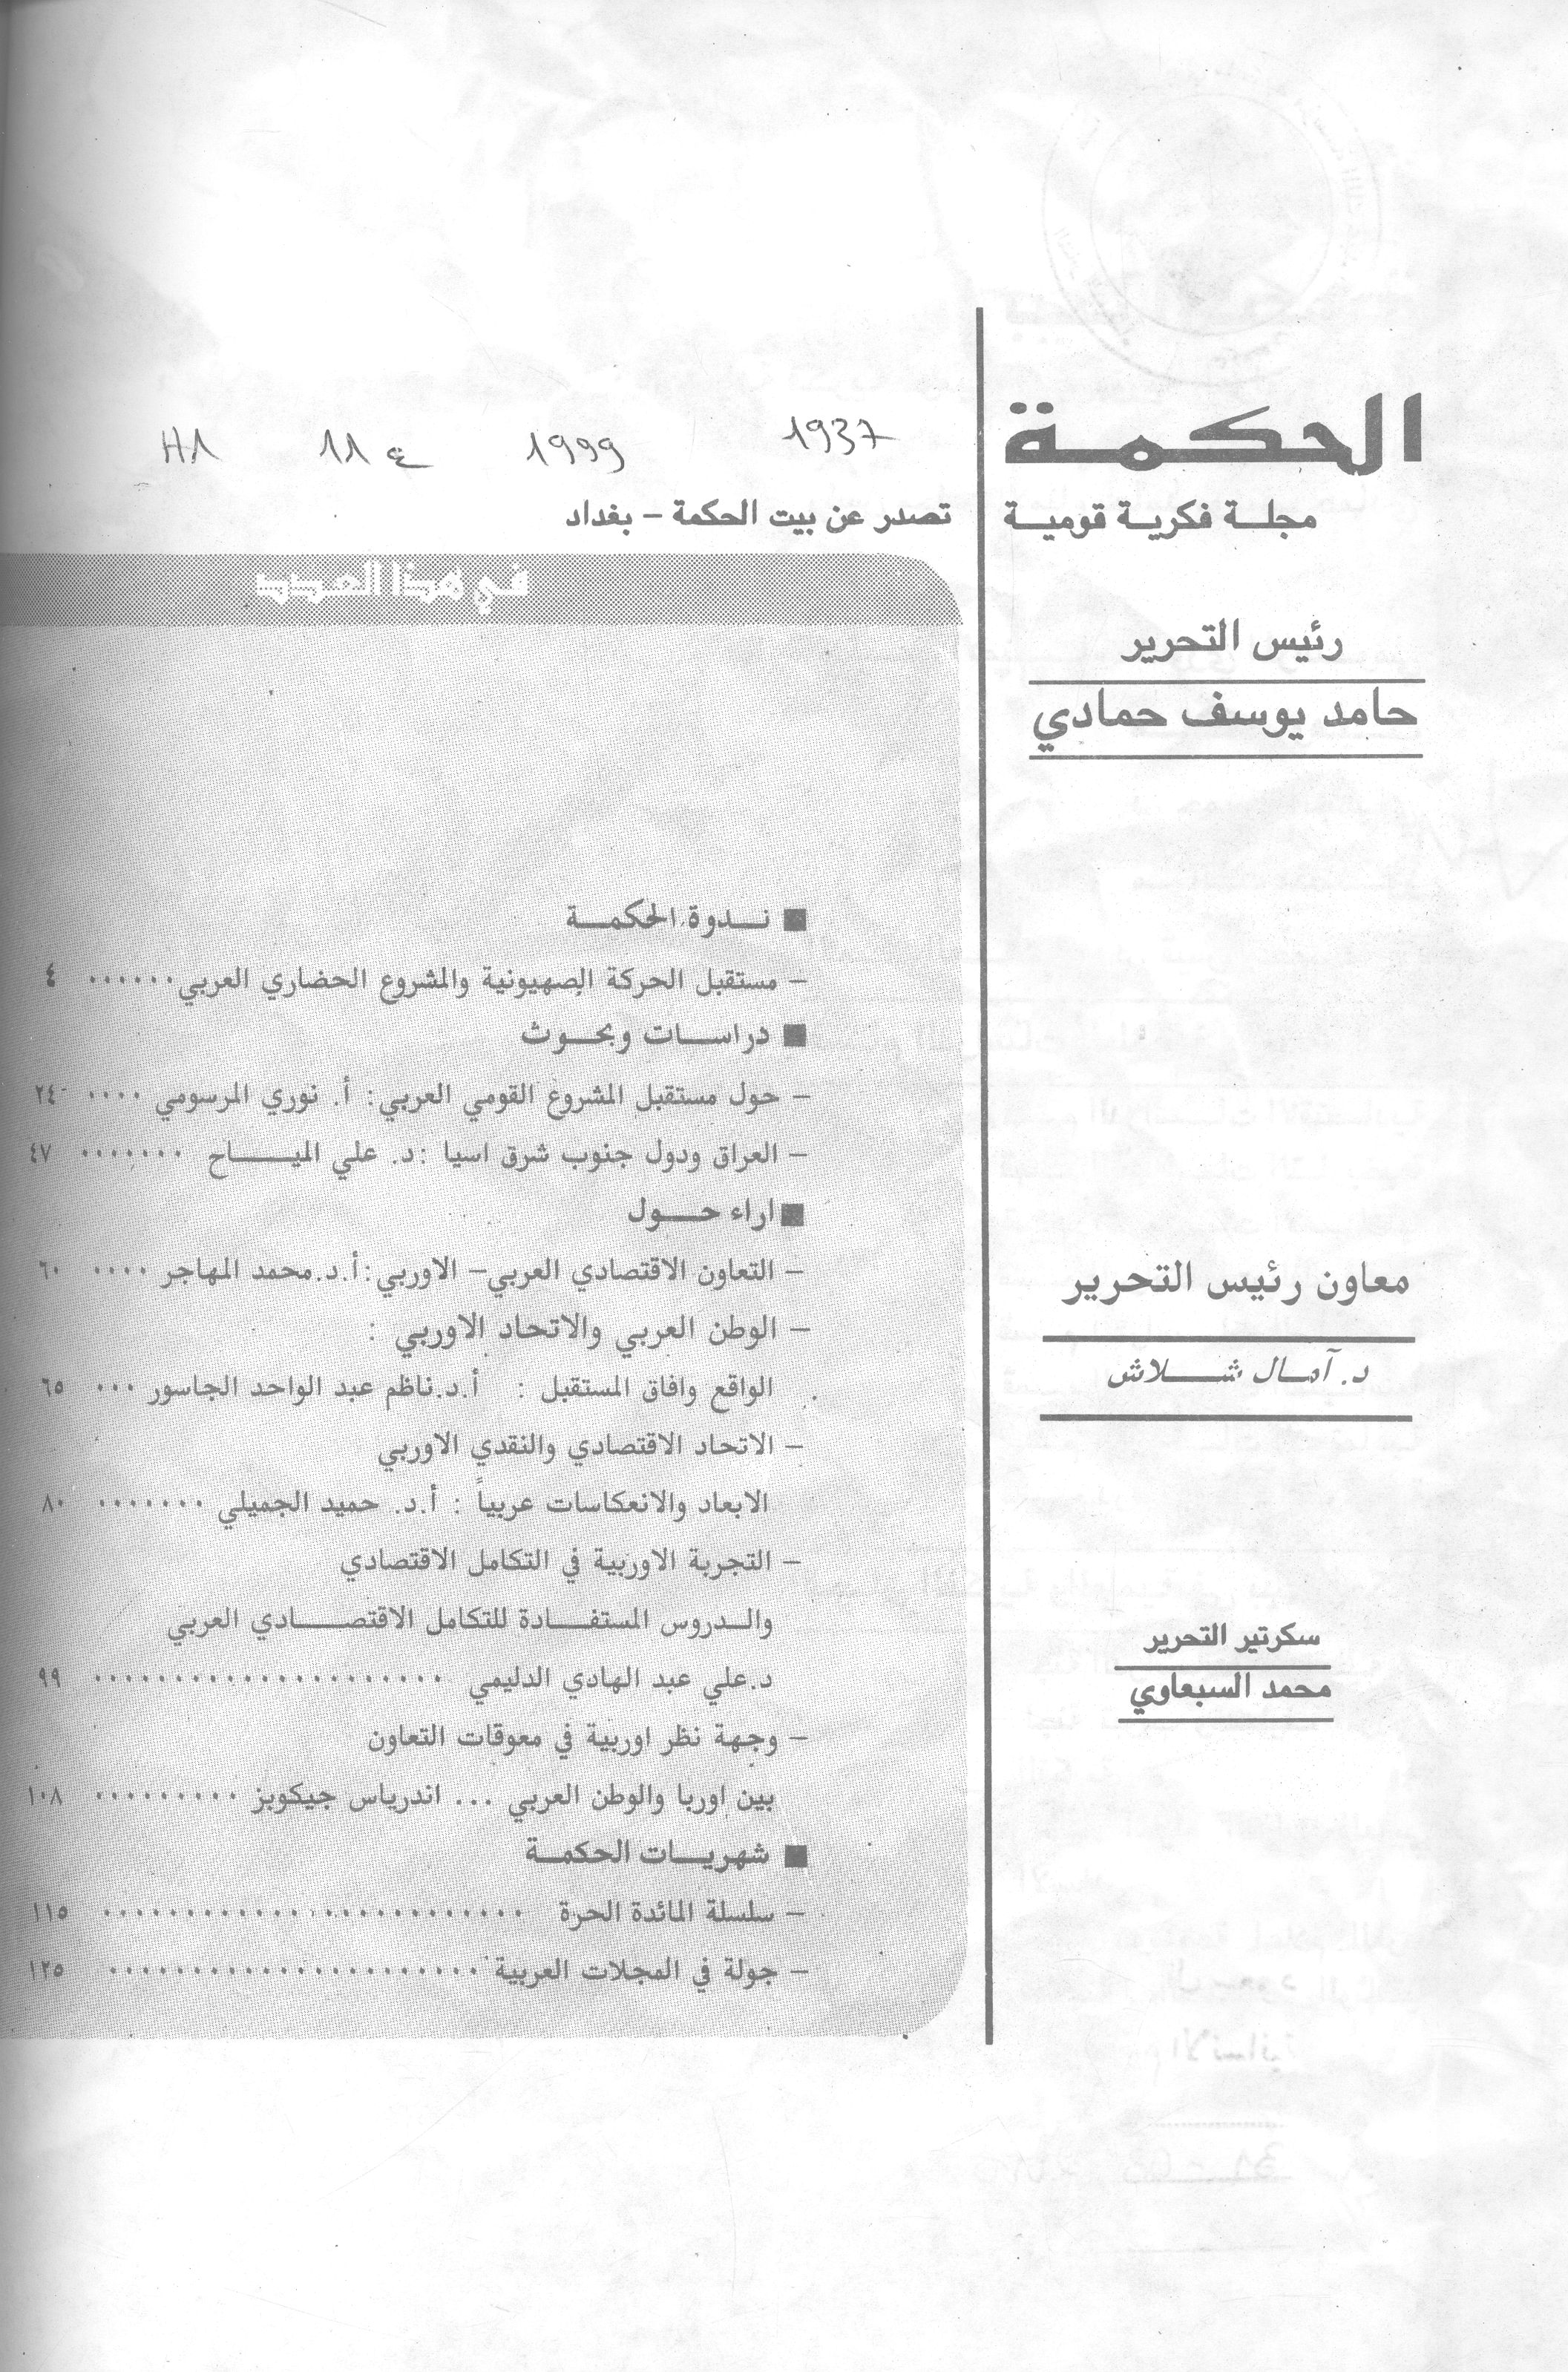 الحكمة
مجلة فكرية قومية
رئيس التحرير
حامد يوسف حمادي
معاون رئيس التحرير
د. آمال شلاش
سكرتير التحرير
محمد السبعاوي
1937 1999 ع 11 H1
تصدر عن بيت الحكمة – بغداد
في هذا العدد
■ ندوة الحكمة
– مستقبل الحركة الصهيونية والمشروع الحضاري العربي ...... ٤
■ دراسات وبحوث
– حول مستقبل المشروع القومي العربي: أ. نوري المرسومي .... ٢٤
– العراق ودول جنوب شرق اسيا : د. علي المياح ....... ٤٧
■ اراء حول
– التعاون الاقتصادي العربي – الاوربي: أ.د.محمد المهاجر .... ٦٠
– الوطن العربي والاتحاد الاوربي :
الواقع وافاق المستقبل : أ.د.ناظم عبد الواحد الجاسور ... ٦٥
– الاتحاد الاقتصادي والنقدي الاوربي
الابعاد والانعكاسات عربياً : أ.د. حميد الجميلي ....... ٨٠
– التجربة الاوربية في التكامل الاقتصادي
والدروس المستفادة للتكامل الاقتصادي العربي
د.علي عبد الهادي الدليمي .................. ٩٩
– وجهة نظر اوربية في معوقات التعاون
بين اوربا والوطن العربي ... اندرياس جيكوبز ......... ١٠٨
■ شهريات الحكمة
– سلسلة المائدة الحرة ...................... ١١٥
– جولة في المجلات العربية .................... ١٢٥